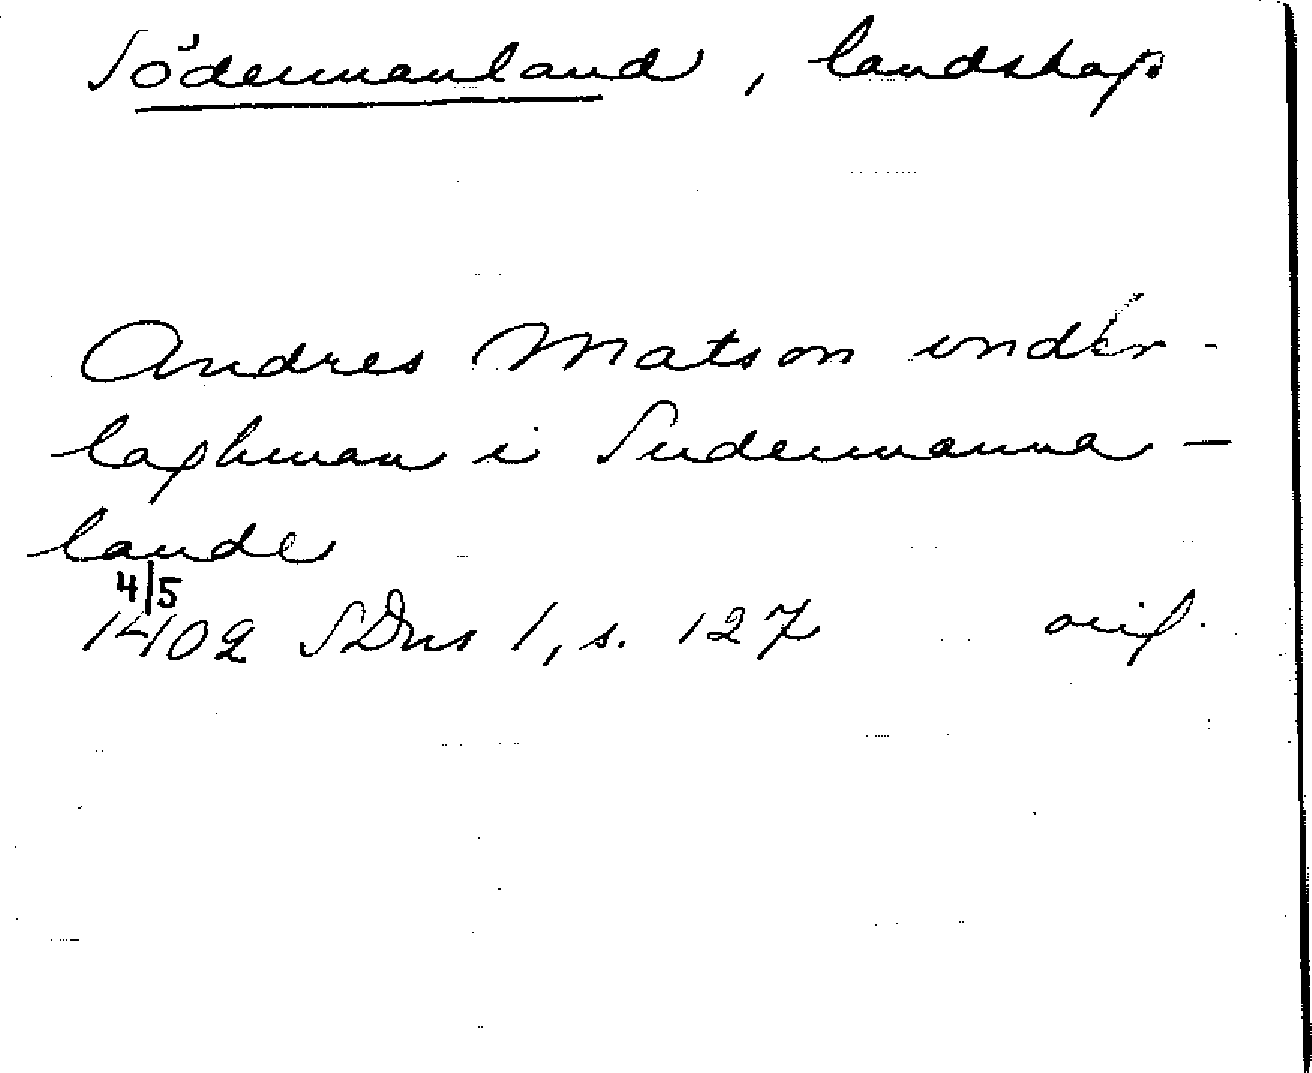 Södermanland, landskap
Andres Matson vnder-
laghman i Sudermanna-
lande
4/5
1402 SDns 1, s. 127 orig.